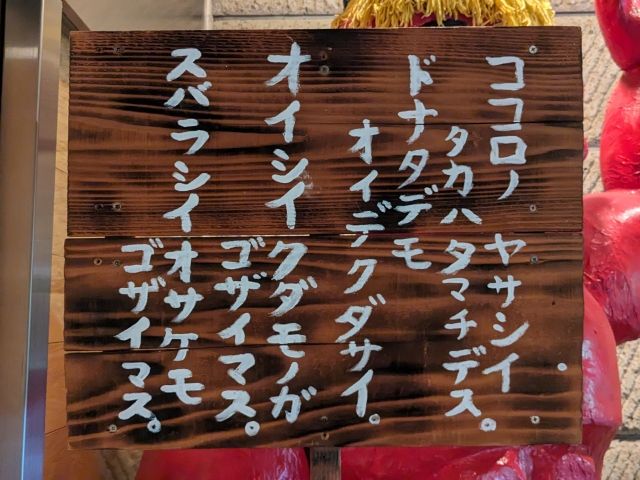 ココロノ ヤサシイ
タカハタマチデス。
ドナタデモ
オイデクダサイ。
オイシイ クダモノガ
ゴザイマス。
スバラシイ オサケモ
ゴザイマス。